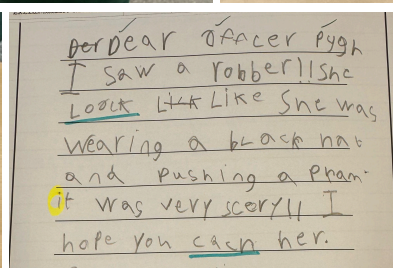 Der Dear Officer Pygh
I saw a robber!! She
Loock Lick Like She was
wearing a black hat
and pushing a pram.
it was very scory!! I
hope you cach her.